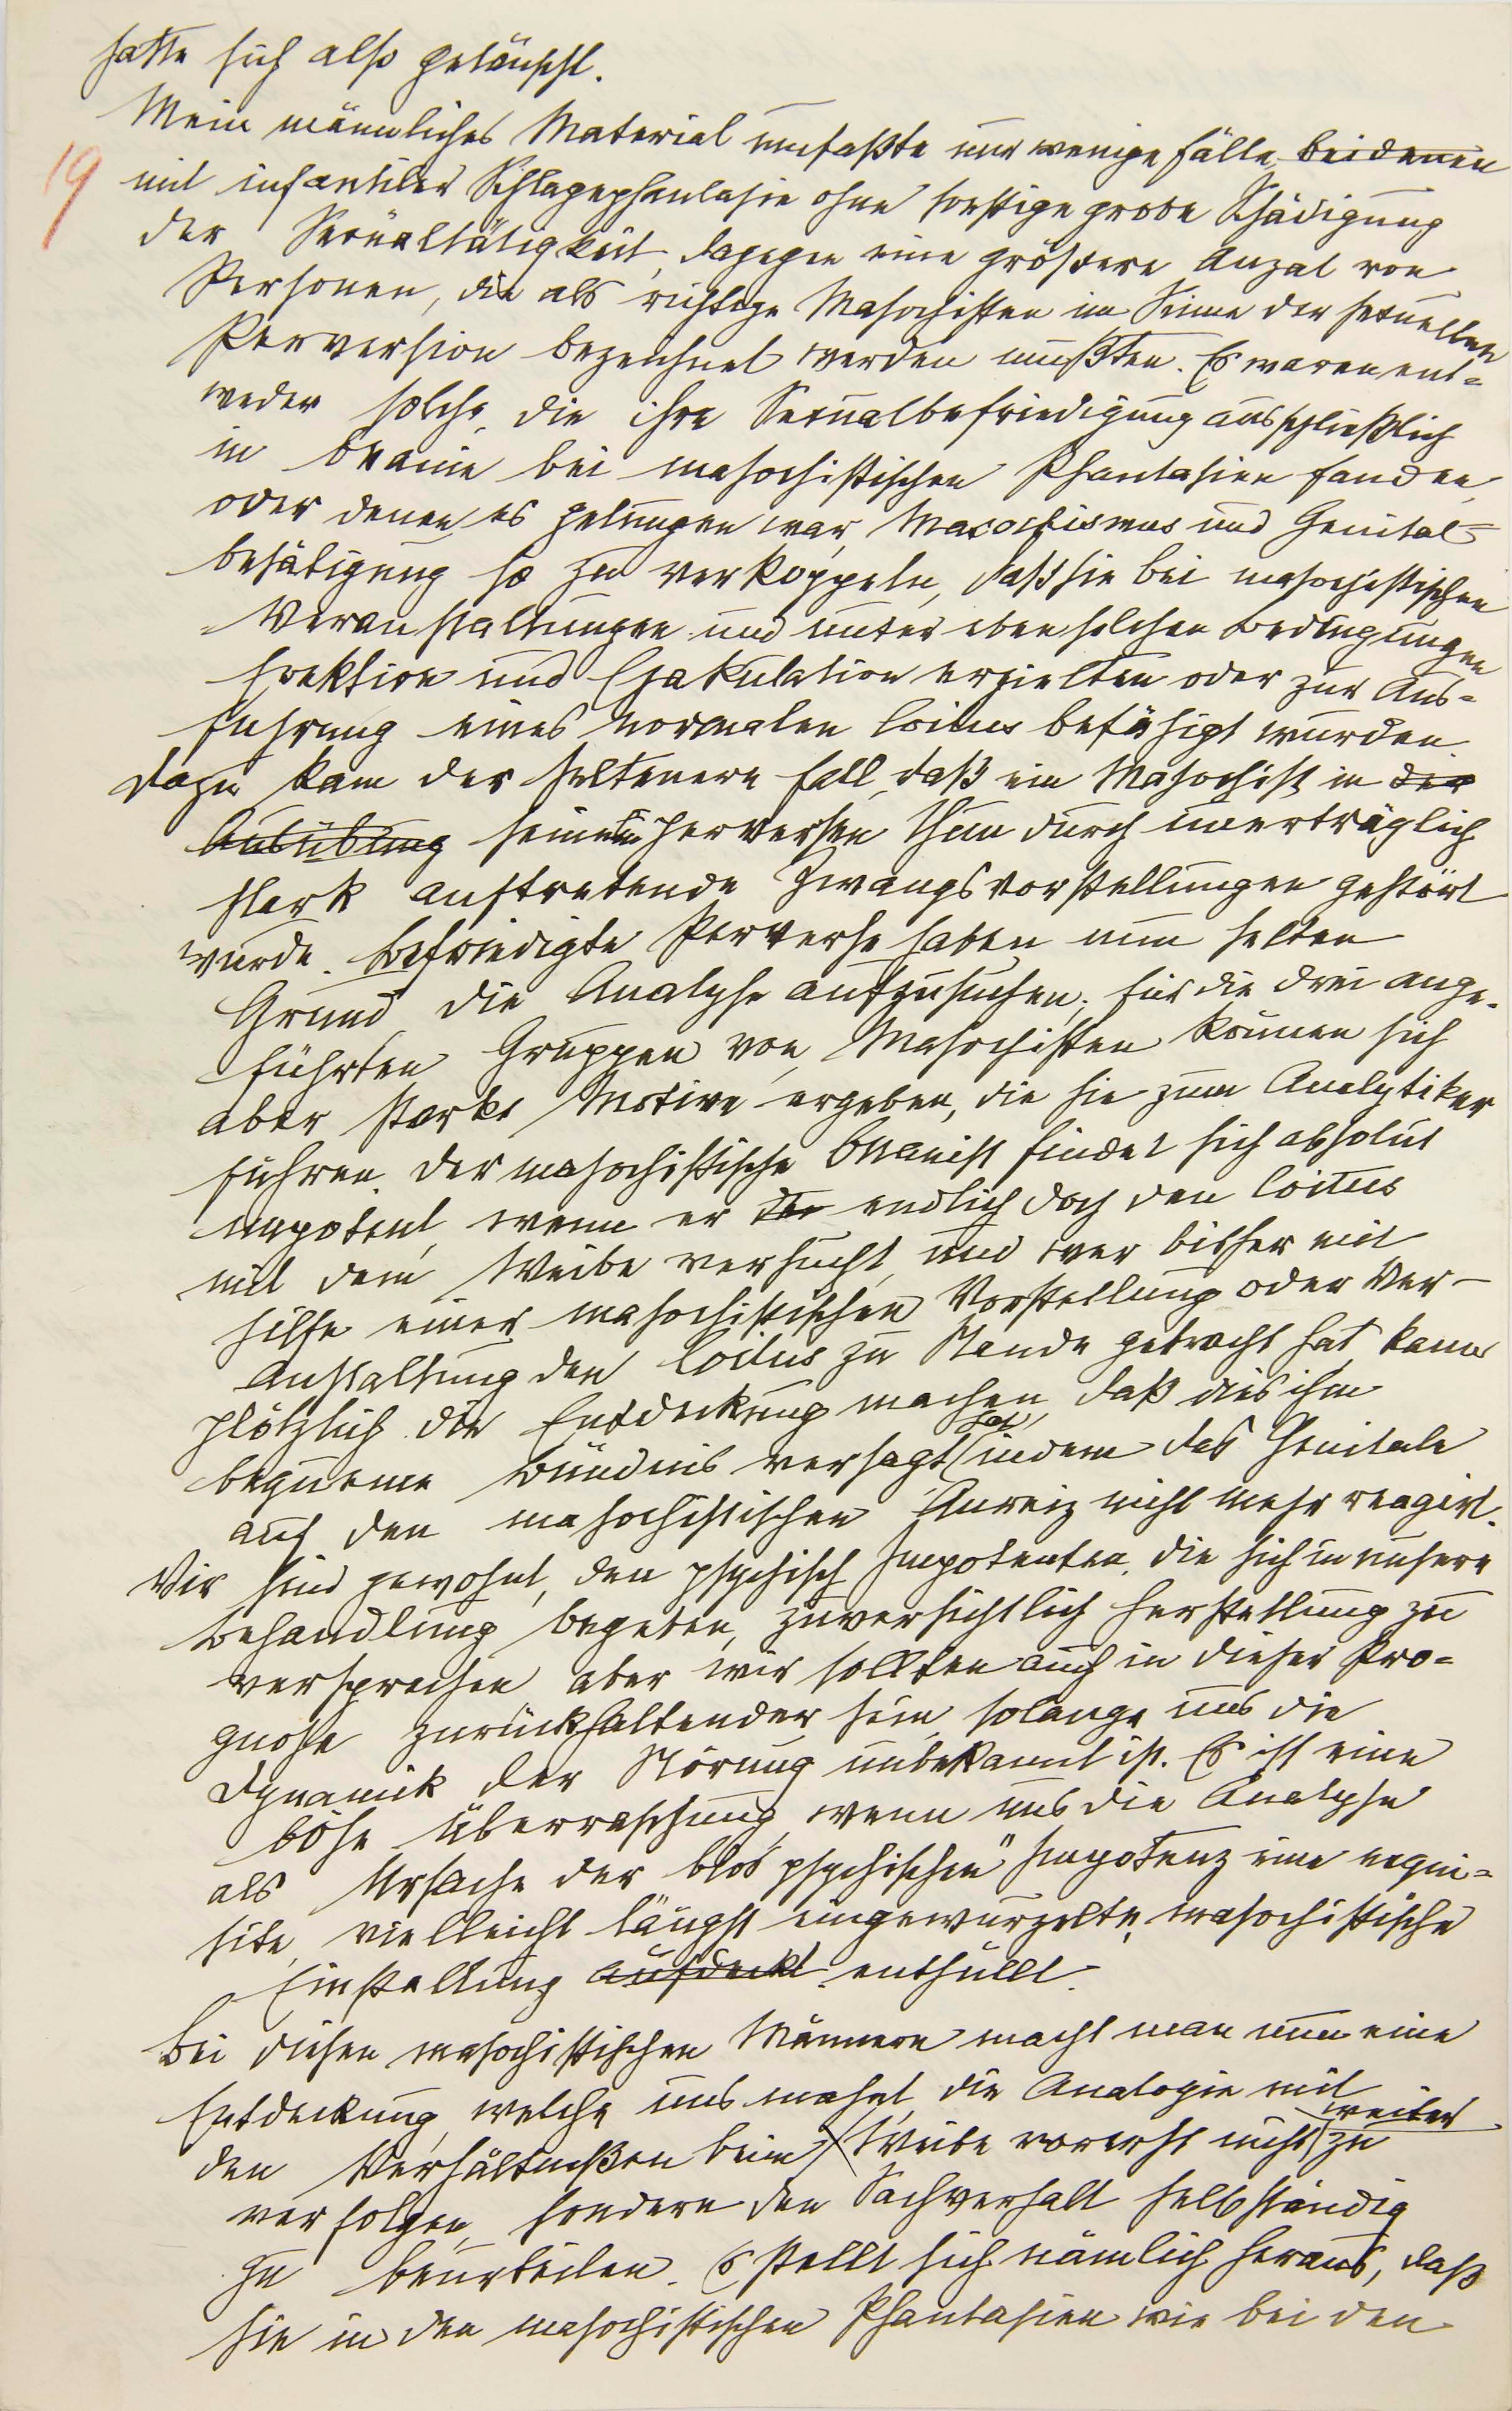 hatte sich also getäuscht.
Mein männliches Material umfaßte nur wenige Fälle bei denen
19
mit infantiler Schlagephantasie ohne sonstige grobe Schädigung
der Sexualtätigkeit, dagegen eine größere Anzal von
Personen, die als richtige Masochisten im Sinne der sexuellen
Perversion bezeichnet werden mußten. Es waren ent=
weder solche, die ihre Sexualbefriedigung ausschließlich
in Onanie bei masochistischen Phantasien fanden,
oder denen es gelungen war, Masochismus und Genital=
betätigung so zu verkoppeln, daß sie bei masochistischen
Veranstaltungen und unter eben solchen Bedingungen
Erektion und Ejakulation erzielten oder zur Aus=
führung eines normalen Coitus befähigt wurden.
Dazu kam der seltenere Fall, daß ein Masochist in der
Ausübung seinem perversen Thun durch unerträglich
stark auftretende Zwangsvorstellungen gestört
wurde. Befriedigte Perverse haben nun selten
Grund, die Analyse aufzusuchen; für die drei ange-
führten Gruppen von Masochisten können sich
aber starke Motive ergeben, die sie zum Analytiker
führen. Der masochistische Onanist findet sich absolut
impotent, wenn er endlich doch den Coitus
mit dem Weibe versucht, und wer bisher mit
Hilfe einer masochistischen Vorstellung oder Ver-
anstaltung den Coitus zu Stande gebracht hat, kann
plötzlich die Entdeckung machen, daß dies ihm
bequeme Bündnis versagt hat, indem das Genitale
auf den masochistischen Anreiz nicht mehr reagirt.
Wir sind gewohnt, den psychisch Impotenten, die sich in unsere
Behandlung begeben, zuversichtlich Herstellung zu
versprechen, aber wir sollten auch in dieser Pro=
gnose zurückhaltender sein, solange uns die
Dynamik der Störung unbekannt ist. Es ist eine
böse Überraschung, wenn uns die Analyse
als Ursache der „blos psychischen" Impotenz eine exqui=
site, vielleicht längst eingewurzelte, masochistische
Einstellung aufdeckt enthüllt.
Bei diesen masochistischen Männern macht man nun eine
Entdeckung, welche uns mahnt, die Analogie mit
den Verhältnißen beim Weibe vorerst nicht weiter zu
verfolgen, sondern den Sachverhalt selbständig
zu beurteilen. Es stellt sich nämlich heraus, daß
sie in den masochistischen Phantasien wie bei den